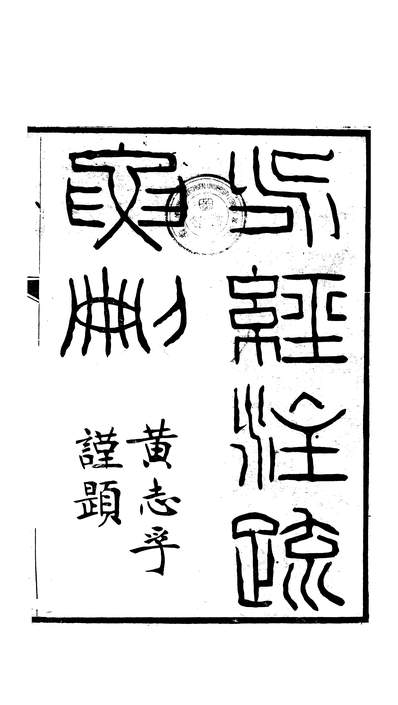 水經注疏
要刪
黃志孚
謹題